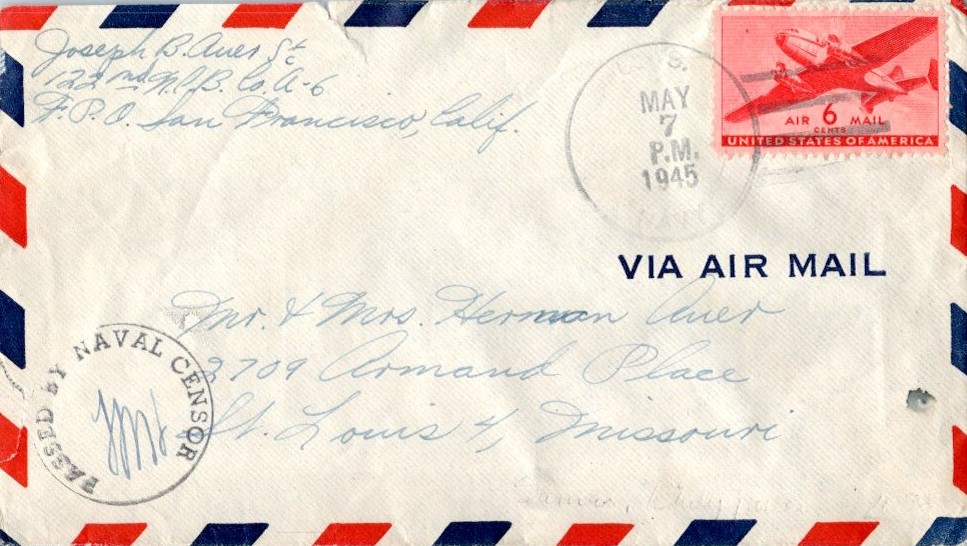 Joseph B. Auer S1c
122nd N.C.B. Co. A-6
F.P.O. San Francisco, Calif.
U.S.
MAY
7
P.M.
1945
AIR 6 MAIL
CENTS
UNITED STATES OF AMERICA
VIA AIR MAIL
Mr. & Mrs. Herman Auer
3709 Armand Place
St. Louis 4, Missouri
PASSED BY NAVAL CENSOR
Samar,